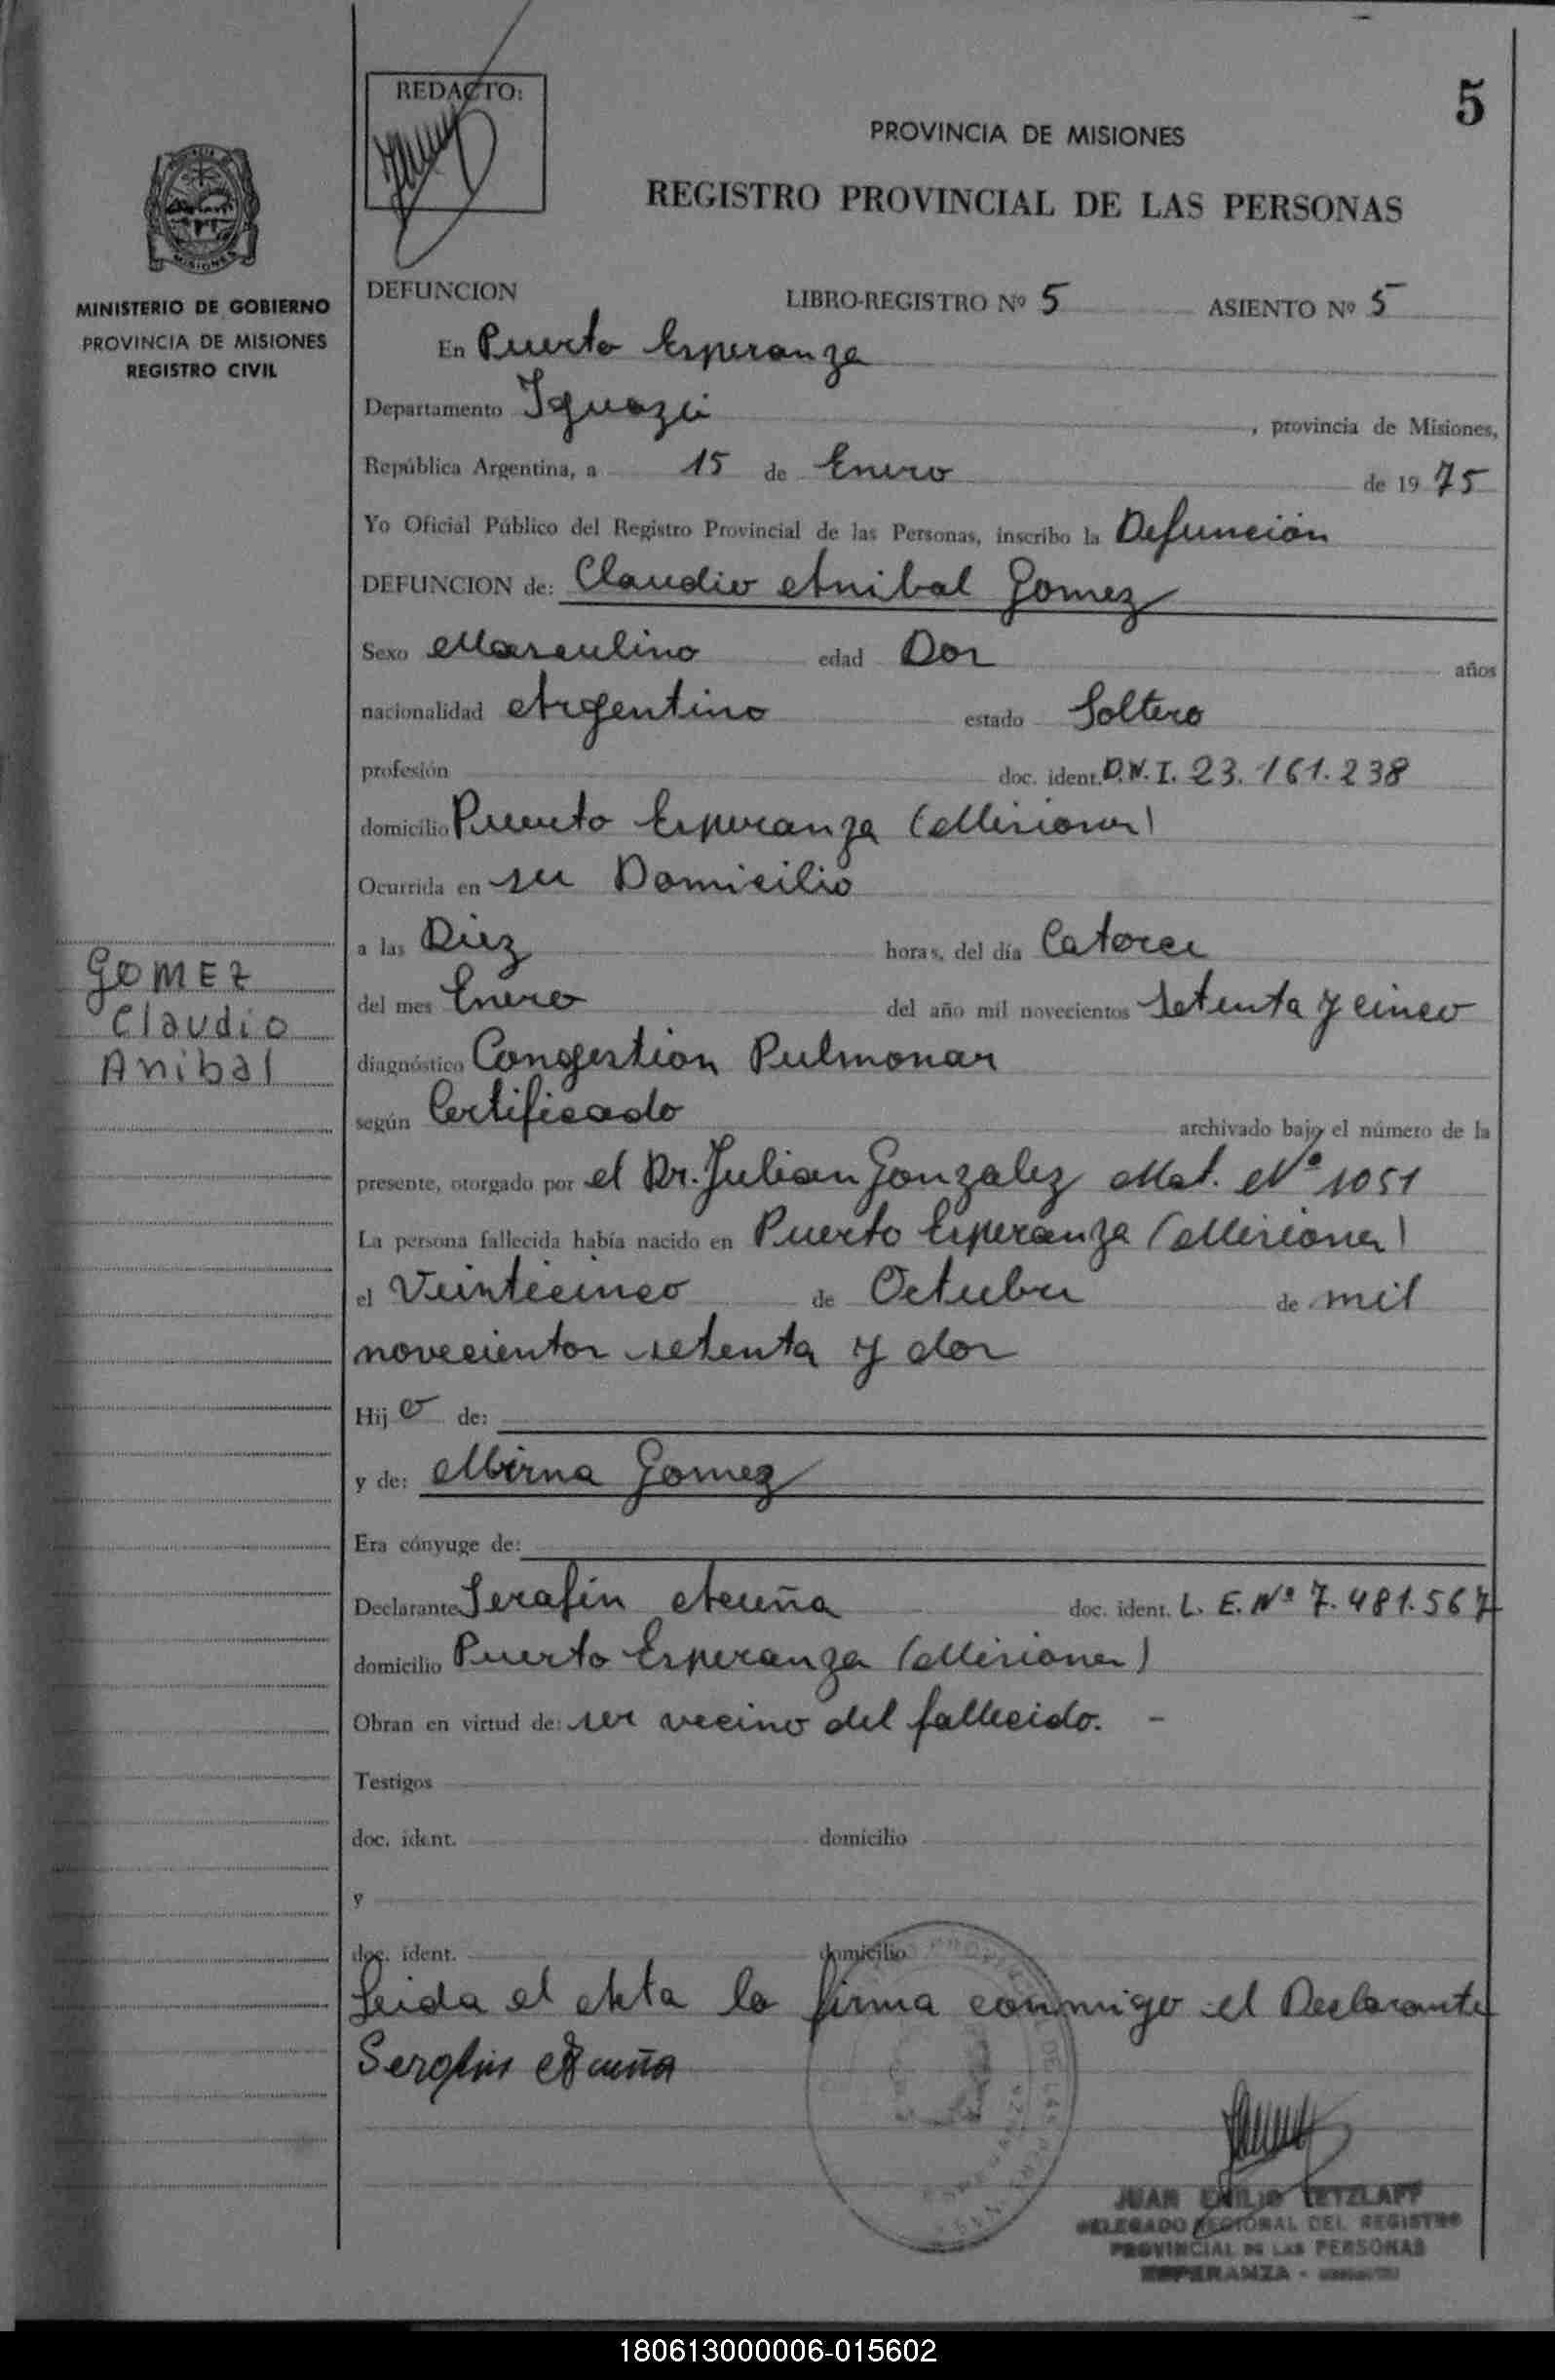 5
REDACTO:
PROVINCIA DE MISIONES
REGISTRO PROVINCIAL DE LAS PERSONAS
MISIONES
MINISTERIO DE GOBIERNO
PROVINCIA DE MISIONES
REGISTRO CIVIL
DEFUNCION LIBRO-REGISTRO Nº 5 ASIENTO Nº 5
En Puerto Esperanza
Departamento Iguazú, provincia de Misiones,
República Argentina, a 15 de Enero de 1975
Yo Oficial Público del Registro Provincial de las Personas, inscribo la Defunción
DEFUNCION de: Claudio Anibal Gomez
Sexo Masculino edad Dos años
nacionalidad Argentino estado Soltero
profesión doc. ident. D.N.I. 23.161.238
domicilio Puerto Esperanza (Misiones)
Ocurrida en su Domicilio
a las Diez horas, del día Catorce
GOMEZ
Claudio
Anibal
del mes Enero del año mil novecientos setenta y cinco
diagnóstico Congestion Pulmonar
según Certificado archivado bajo el número de la
presente, otorgado por el Dr. Julian Gonzalez Mat. Nº 1051
La persona fallecida había nacido en Puerto Esperanza (Misiones)
el Veinticinco de Octubre de mil
novecientos setenta y dos
Hijo de:
y de: Mirna Gomez
Era cónyuge de:
Declarante Serafin Acuña doc. ident. L. E. Nº 7.481.567
domicilio Puerto Esperanza (Misiones)
Obran en virtud de: ser vecino del fallecido. -
Testigos
doc. ident. domicilio
y
doc. ident. domicilio
Leida el Acta la firma conmigo el Declarante
Serafin Acuña
JUAN EMILIO RETZLAFF
DELEGADO REGIONAL DEL REGISTRO
PROVINCIAL DE LAS PERSONAS
ESPERANZA -
180613000006-015602